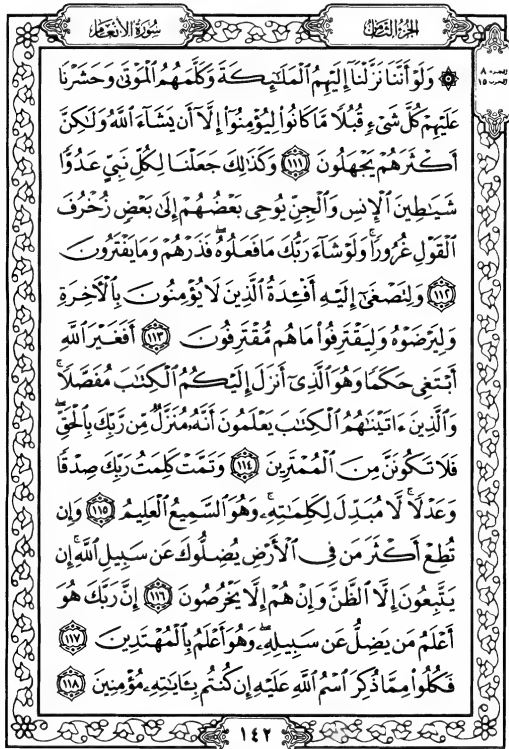 سورة الأنعام
الجزء الثامن
الجزء ٨
الحزب ١٥
۞ وَلَوْ أَنَّنَا نَزَّلْنَآ إِلَيْهِمُ ٱلْمَلَـٰٓئِكَةَ وَكَلَّمَهُمُ ٱلْمَوْتَىٰ وَحَشَرْنَا
عَلَيْهِمْ كُلَّ شَىْءٍ قُبُلًا مَّا كَانُوا۟ لِيُؤْمِنُوٓا۟ إِلَّآ أَن يَشَآءَ ٱللَّهُ وَلَـٰكِنَّ
أَكْثَرَهُمْ يَجْهَلُونَ ١١١ وَكَذَٰلِكَ جَعَلْنَا لِكُلِّ نَبِىٍّ عَدُوًّا
شَيَـٰطِينَ ٱلْإِنسِ وَٱلْجِنِّ يُوحِى بَعْضُهُمْ إِلَىٰ بَعْضٍ زُخْرُفَ
ٱلْقَوْلِ غُرُورًا ۚ وَلَوْ شَآءَ رَبُّكَ مَا فَعَلُوهُ ۖ فَذَرْهُمْ وَمَا يَفْتَرُونَ
١١٢ وَلِتَصْغَىٰٓ إِلَيْهِ أَفْـِٔدَةُ ٱلَّذِينَ لَا يُؤْمِنُونَ بِٱلْـَٔاخِرَةِ
وَلِيَرْضَوْهُ وَلِيَقْتَرِفُوا۟ مَا هُم مُّقْتَرِفُونَ ١١٣ أَفَغَيْرَ ٱللَّهِ
أَبْتَغِى حَكَمًا وَهُوَ ٱلَّذِىٓ أَنزَلَ إِلَيْكُمُ ٱلْكِتَـٰبَ مُفَصَّلًا ۚ
وَٱلَّذِينَ ءَاتَيْنَـٰهُمُ ٱلْكِتَـٰبَ يَعْلَمُونَ أَنَّهُۥ مُنَزَّلٌ مِّن رَّبِّكَ بِٱلْحَقِّ ۖ
فَلَا تَكُونَنَّ مِنَ ٱلْمُمْتَرِينَ ١١٤ وَتَمَّتْ كَلِمَتُ رَبِّكَ صِدْقًا
وَعَدْلًا ۚ لَّا مُبَدِّلَ لِكَلِمَـٰتِهِۦ ۚ وَهُوَ ٱلسَّمِيعُ ٱلْعَلِيمُ ١١٥ وَإِن
تُطِعْ أَكْثَرَ مَن فِى ٱلْأَرْضِ يُضِلُّوكَ عَن سَبِيلِ ٱللَّهِ ۚ إِن
يَتَّبِعُونَ إِلَّا ٱلظَّنَّ وَإِنْ هُمْ إِلَّا يَخْرُصُونَ ١١٦ إِنَّ رَبَّكَ هُوَ
أَعْلَمُ مَن يَضِلُّ عَن سَبِيلِهِۦ ۖ وَهُوَ أَعْلَمُ بِٱلْمُهْتَدِينَ ١١٧
فَكُلُوا۟ مِمَّا ذُكِرَ ٱسْمُ ٱللَّهِ عَلَيْهِ إِن كُنتُم بِـَٔايَـٰتِهِۦ مُؤْمِنِينَ ١١٨
١٤٢